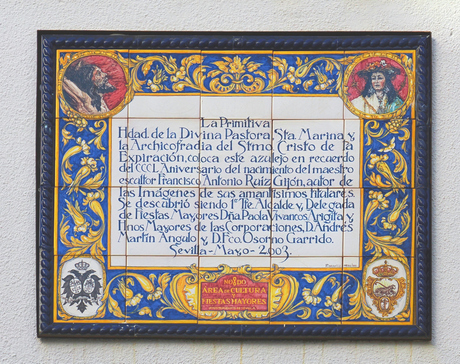 La Primitiva
Hdad. de la Divina Pastora, Sta. Marina y,
la Archicofradía del Stmo. Cristo de la
Expiración, coloca este azulejo en recuerdo
del CCCL Aniversario del nacimiento del maestro
escultor Francisco Antonio Ruiz Gijón, autor de
las Imágenes de sus amantísimos titulares
Se descubrió siendo 1ª Tte. Alcalde y, Delegada
de Fiestas Mayores Dña Paola Vivancos Arigita y,
Hnos Mayores de las Corporaciones, D. Andrés
Martín Angulo y, D. Fco. Osorno Garrido.
Sevilla - Mayo - 2003.
NO8DO
AREA DE CULTURA
Y
FIESTAS MAYORES